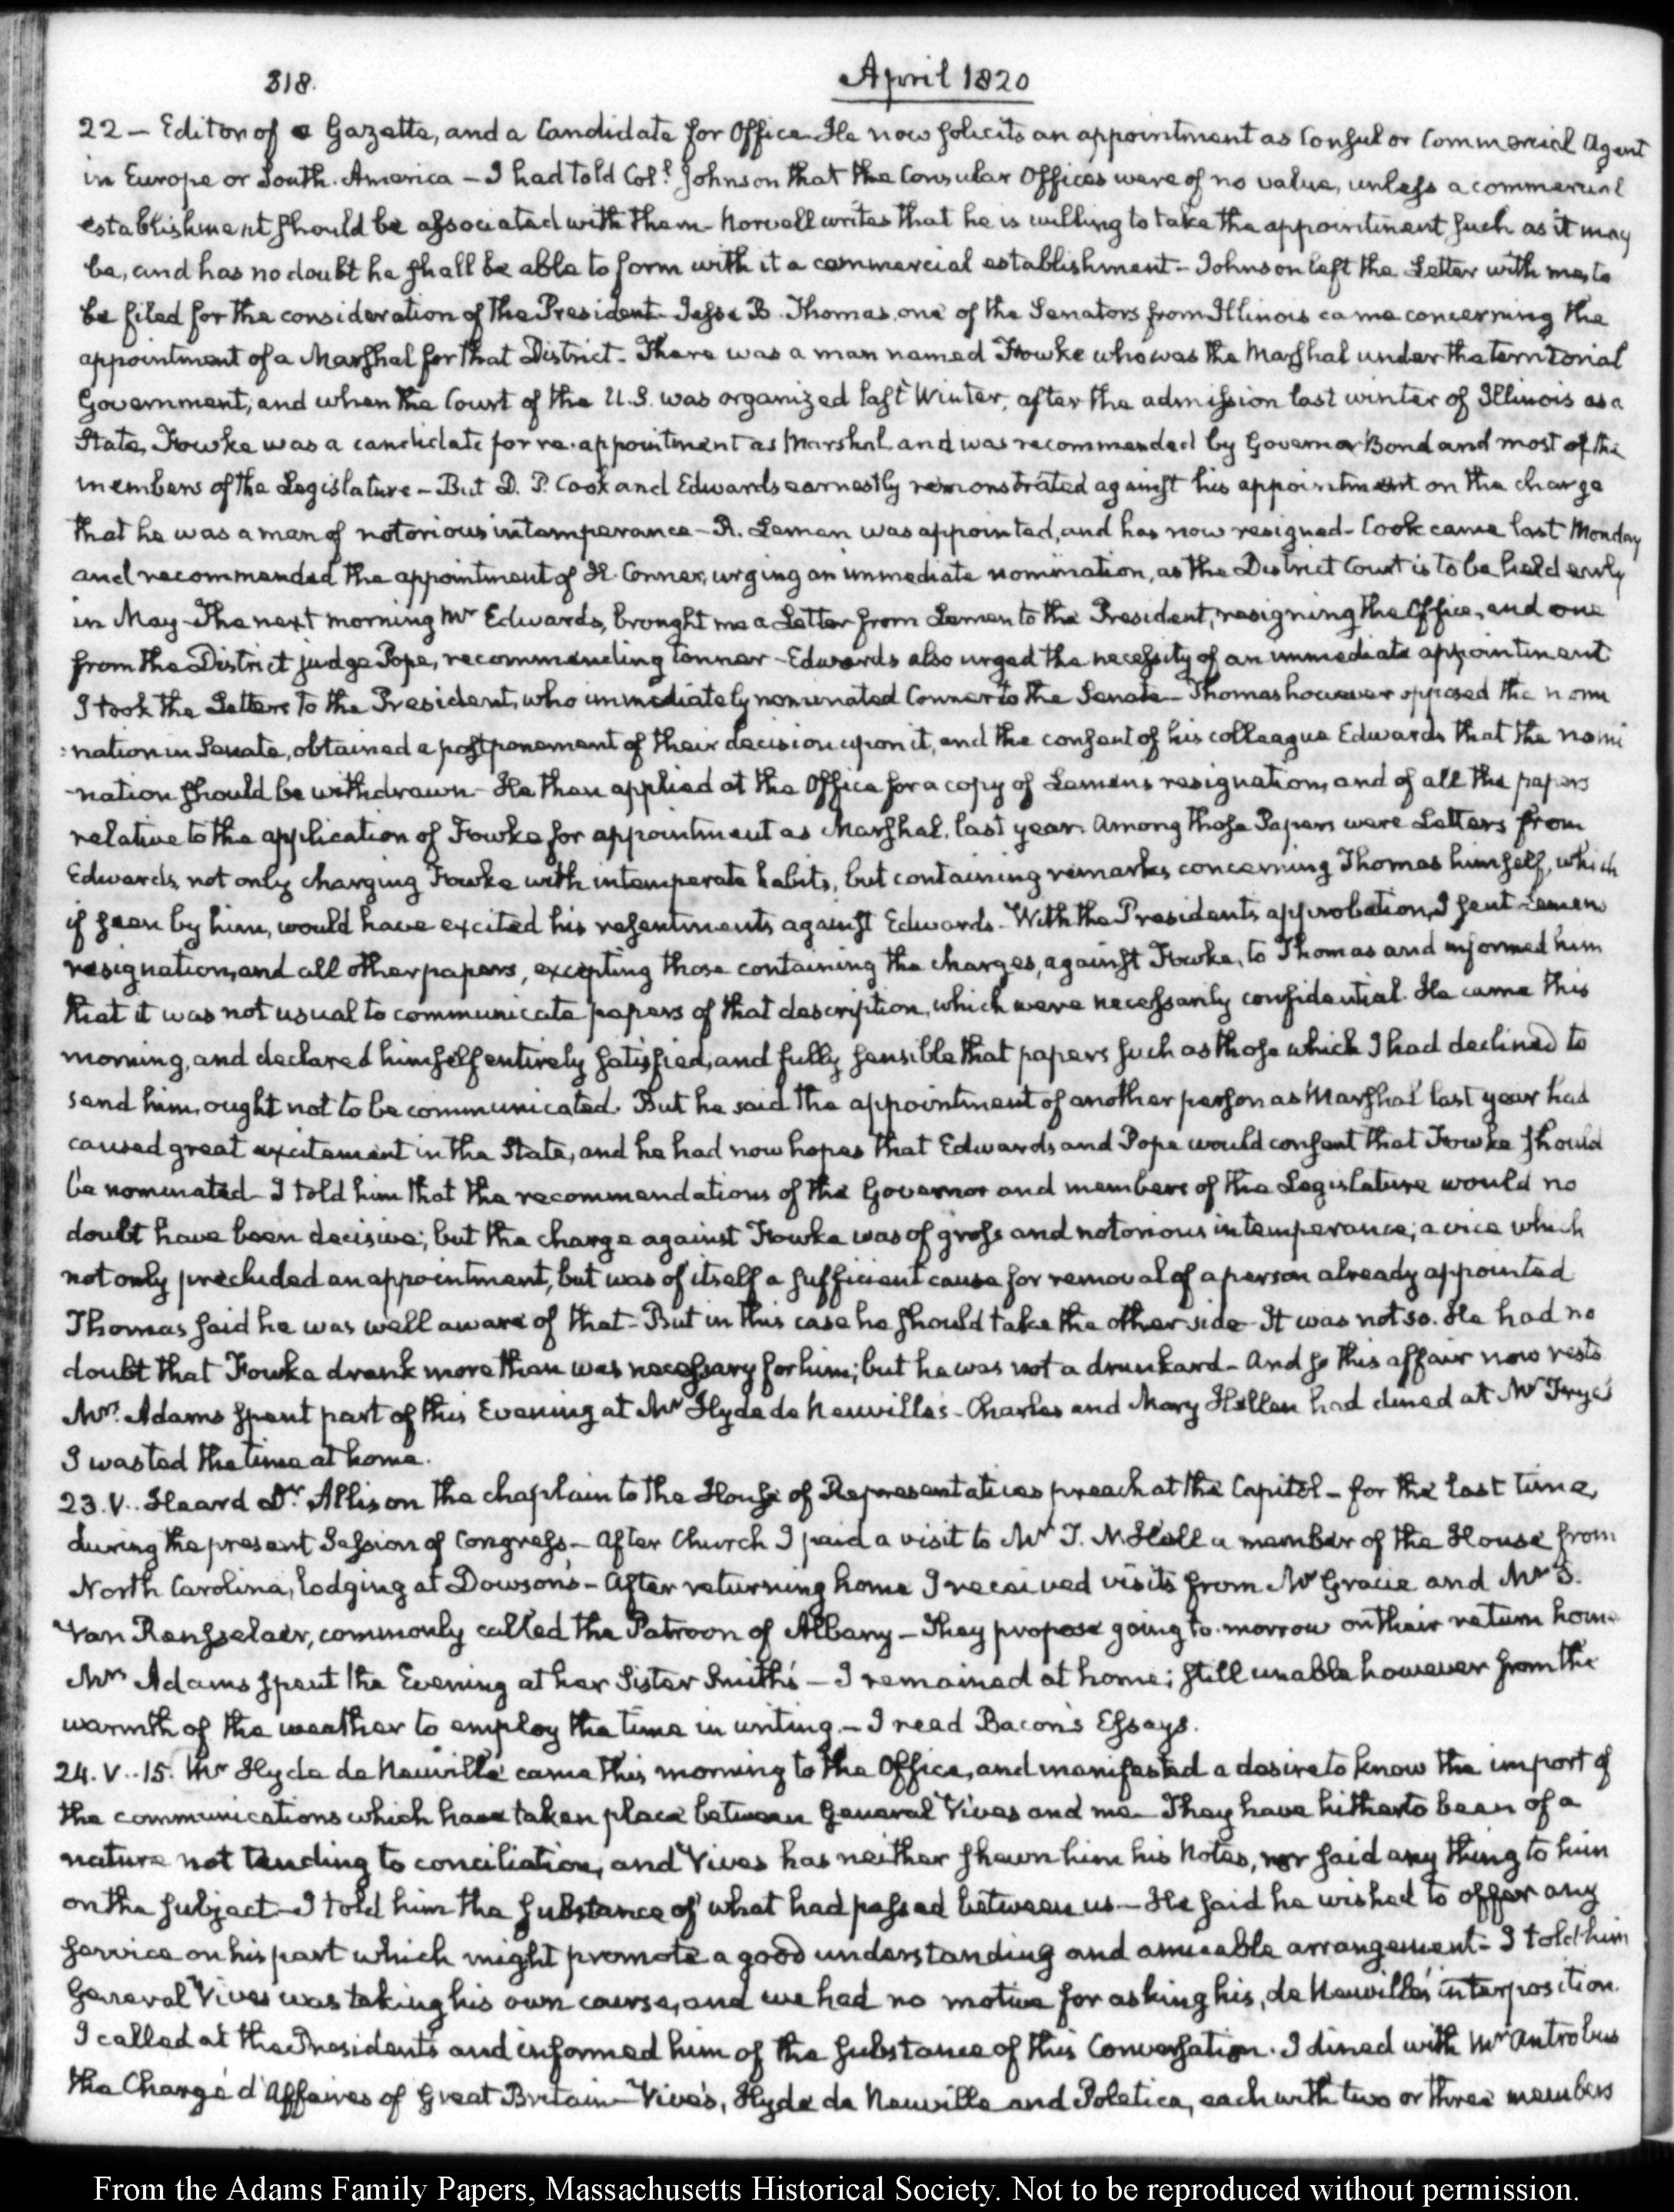 318.
April 1820
22 — Editor of a Gazette, and a Candidate for Office. He now solicits an appointment as Consul or Commercial Agent
in Europe or South. America — I had told Coll. Johnson that the Consular Offices were of no value, unless a commercial
establishment should be associated with them — Norvell writes that he is willing to take the appointment such as it may
be, and has no doubt he shall be able to form with it a commercial establishment — Johnson left the Letter with me, to
be filed for the consideration of the President — Jesse B. Thomas, one of the Senators from Illinois came concerning the
appointment of a Marshal for that District — There was a man named Fowke who was the Marshal under the territorial
Government, and when the Court of the U.S. was organized last Winter, after the admission last winter of Illinois as a
State, Fowke was a candidate for re-appointment as Marshal and was recommended by Governor Bond and most of the
members of the Legislature — But D. P. Cook and Edwards earnestly remonstrated against his appointment on the charge
that he was a man of notorious intemperance — R. Lemen was appointed, and has now resigned — Cook came last Monday
and recommended the appointment of H. Conner, urging an immediate nomination, as the District Court is to be held early
in May — The next morning Mr Edwards, brought me a Letter from Lemen to the President, resigning the Office, and one
from the District judge Pope, recommending Conner — Edwards also urged the necessity of an immediate appointment
I took the Letters to the President, who immediately nominated Conner to the Senate — Thomas however opposed the nomi
:nation in Senate, obtained a postponement of their decision upon it, and the consent of his colleague Edwards that the nomi
-nation should be withdrawn — He then applied at the Office for a copy of Lemens resignation, and of all the papers
relative to the application of Fowke for appointment as Marshal, last year. Among those Papers were Letters from
Edwards, not only charging Fowke with intemperate habits, but containing remarks concerning Thomas himself, which
if seen by him, would have excited his resentments against Edwards — With the Presidents approbation, I sent Lemens
resignation, and all other papers, excepting those containing the charges, against Fowke, to Thomas and informed him
that it was not usual to communicate papers of that description, which were necessarily confidential. He came this
morning, and declared himself entirely satisfied, and fully sensible that papers such as those which I had declined to
send him, ought not to be communicated. But he said the appointment of another person as Marshal last year had
caused great excitement in the State, and he had now hopes that Edwards and Pope would consent that Fowke should
be nominated — I told him that the recommendations of the Governor and members of the Legislature would no
doubt have been decisive; but the charge against Fowke was of gross and notorious intemperance; a vice which
not only precluded an appointment, but was of itself a sufficient cause for removal of a person already appointed
Thomas said he was well aware of that — But in this case he should take the other side — It was not so. He had no
doubt that Fowke drank more than was necessary for him; but he was not a drunkard — And so this affair now rests
Mrs. Adams spent part of this Evening at Mr Hyde de Neuville's — Charles and Mary Hellen had dined at Mr Frye's
I wasted the time at home.
23. V.. Heard Dr. Allison the chaplain to the House of Representatives preach at the Capitol — for the last time,
during the present Session of Congress — After Church I paid a visit to Mr T. N Hall a member of the House from
North Carolina, lodging at Dowson's — After returning home I received visits from Mr Gracie and Mr S.
Van Rensselaer, commonly called the Patroon of Albany — They propose going to-morrow on their return home
Mrs Adams spent the Evening at her Sister Smith's — I remained at home; still unable however from the
warmth of the weather to employ the time in writing — I read Bacon's Essays.
24. V..15. Mr Hyde de Neuville came this morning to the Office, and manifested a desire to know the import of
the communications which have taken place between General Vives and me — They have hitherto been of a
nature not tending to conciliation, and Vives has neither shewn him his Notes, nor said any thing to him
on the subject — I told him the substance of what had passed between us — He said he wished to offer any
service on his part which might promote a good understanding and amicable arrangement — I told him
General Vives was taking his own course, and we had no motive for asking his, de Neuville's interposition.
I called at the President's and informed him of the substance of this Conversation. I dined with Mr Antrobus
the Chargé d'Affaires of Great Britain — Vives, Hyde de Neuville and Poletica, each with two or three members
From the Adams Family Papers, Massachusetts Historical Society. Not to be reproduced without permission.